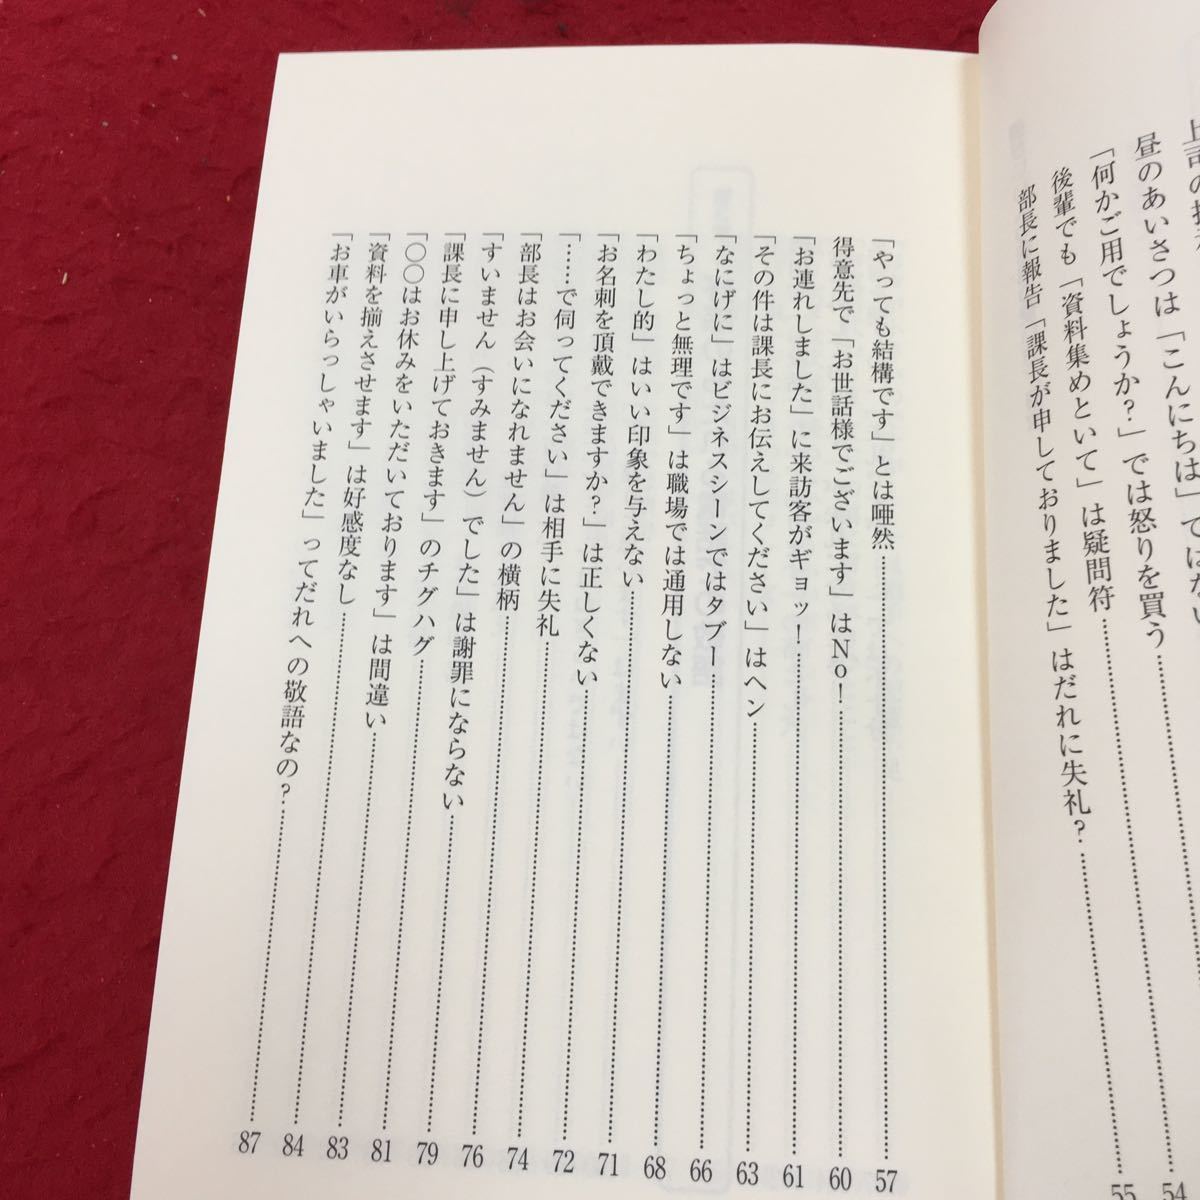 上司の
昼のあいさつは「こんにちは」ではない
「何かご用でしょうか？」では怒りを買う
後輩でも「資料集めといて」は疑問符……54
部長に報告「課長が申しておりました」はだれに失礼？……55
「やっても結構です」とは唖然……57
得意先で「お世話様でございます」はNo！……60
「お連れしました」に来訪客がギョッ！……61
「その件は課長にお伝えしてください」はヘン……63
「なにげに」はビジネスシーンではタブー……66
「ちょっと無理です」は職場では通用しない……68
「わたし的」はいい印象を与えない……71
「お名刺を頂戴できますか？」は正しくない……72
「……で伺ってください」は相手に失礼……74
「部長はお会いになれません」の横柄……76
「すいません（すみません）でした」は謝罪にならない……79
「課長に申し上げておきます」のチグハグ……81
「〇〇はお休みをいただいております」は間違い……83
「資料を揃えさせます」は好感度なし……84
「お車がいらっしゃいました」ってだれへの敬語なの？……87